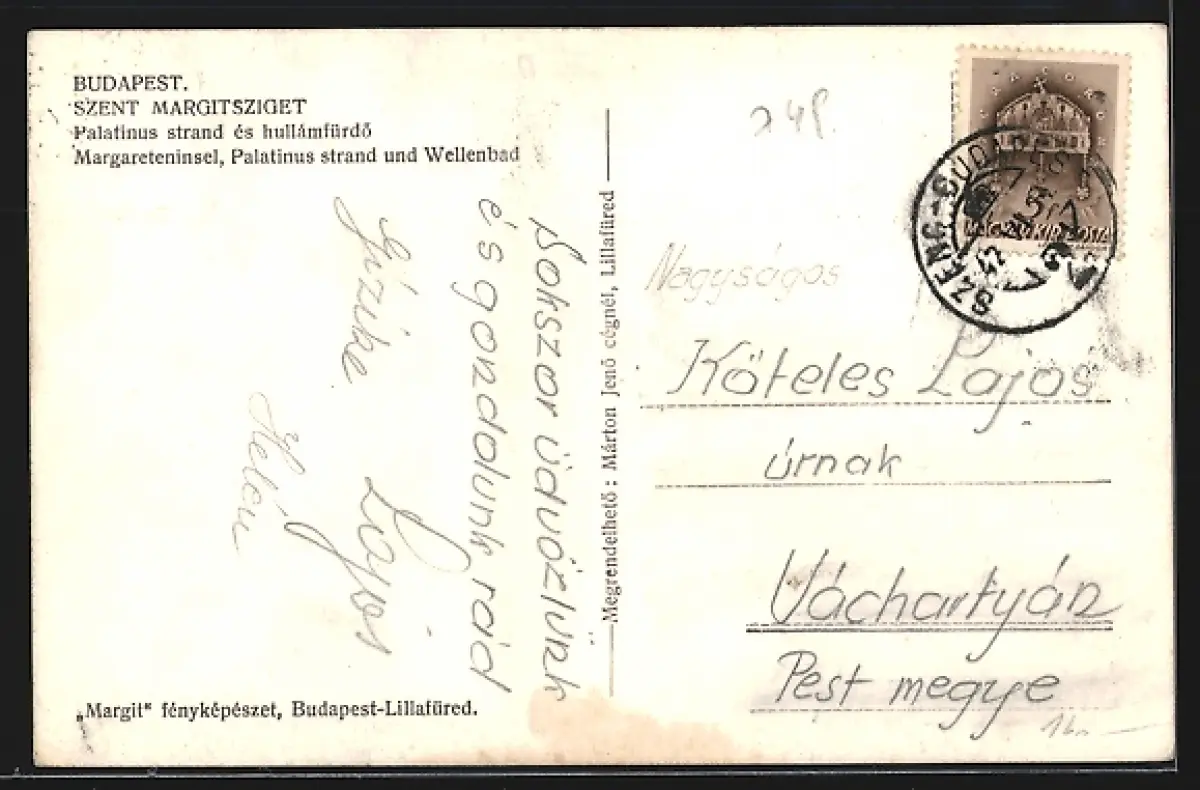 BUDAPEST.
SZENT MARGITSZIGET
Palatinus strand és hullámfürdő
Margareteninsel, Palatinus strand und Wellenbad
Sokszor üdvözlünk
és gondolunk rád
Gizike Lajos
Helén
„Margit" fényképészet, Budapest-Lillafüred.
Megrendelhető: Márton Jenő cégnél, Lillafüred
Nagyságos
Köteles Lajos
úrnak
Váchartyán
Pest megye
MAGYAR KIR. POSTA